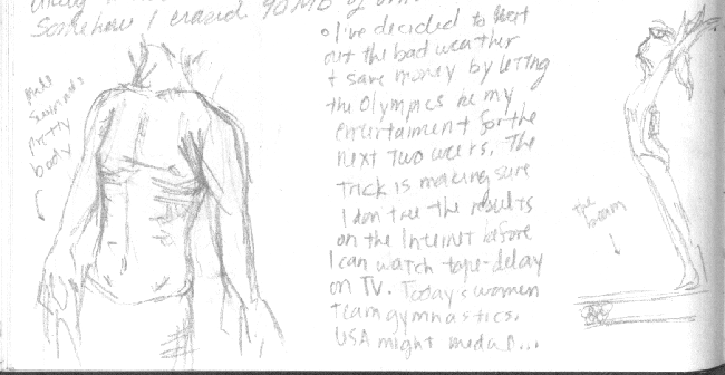 Somehow I erased 90 MB of
Pretty
body
• I've decided to wait
out the bad weather
+ save money by letting
the Olympics be my
entertaiment for the
next two weeks. The
trick is making sure
I don't see the results
on the Internet before
I can watch tape-delay
on TV. Today's women
team gymnastics.
USA might medal...
the
beam